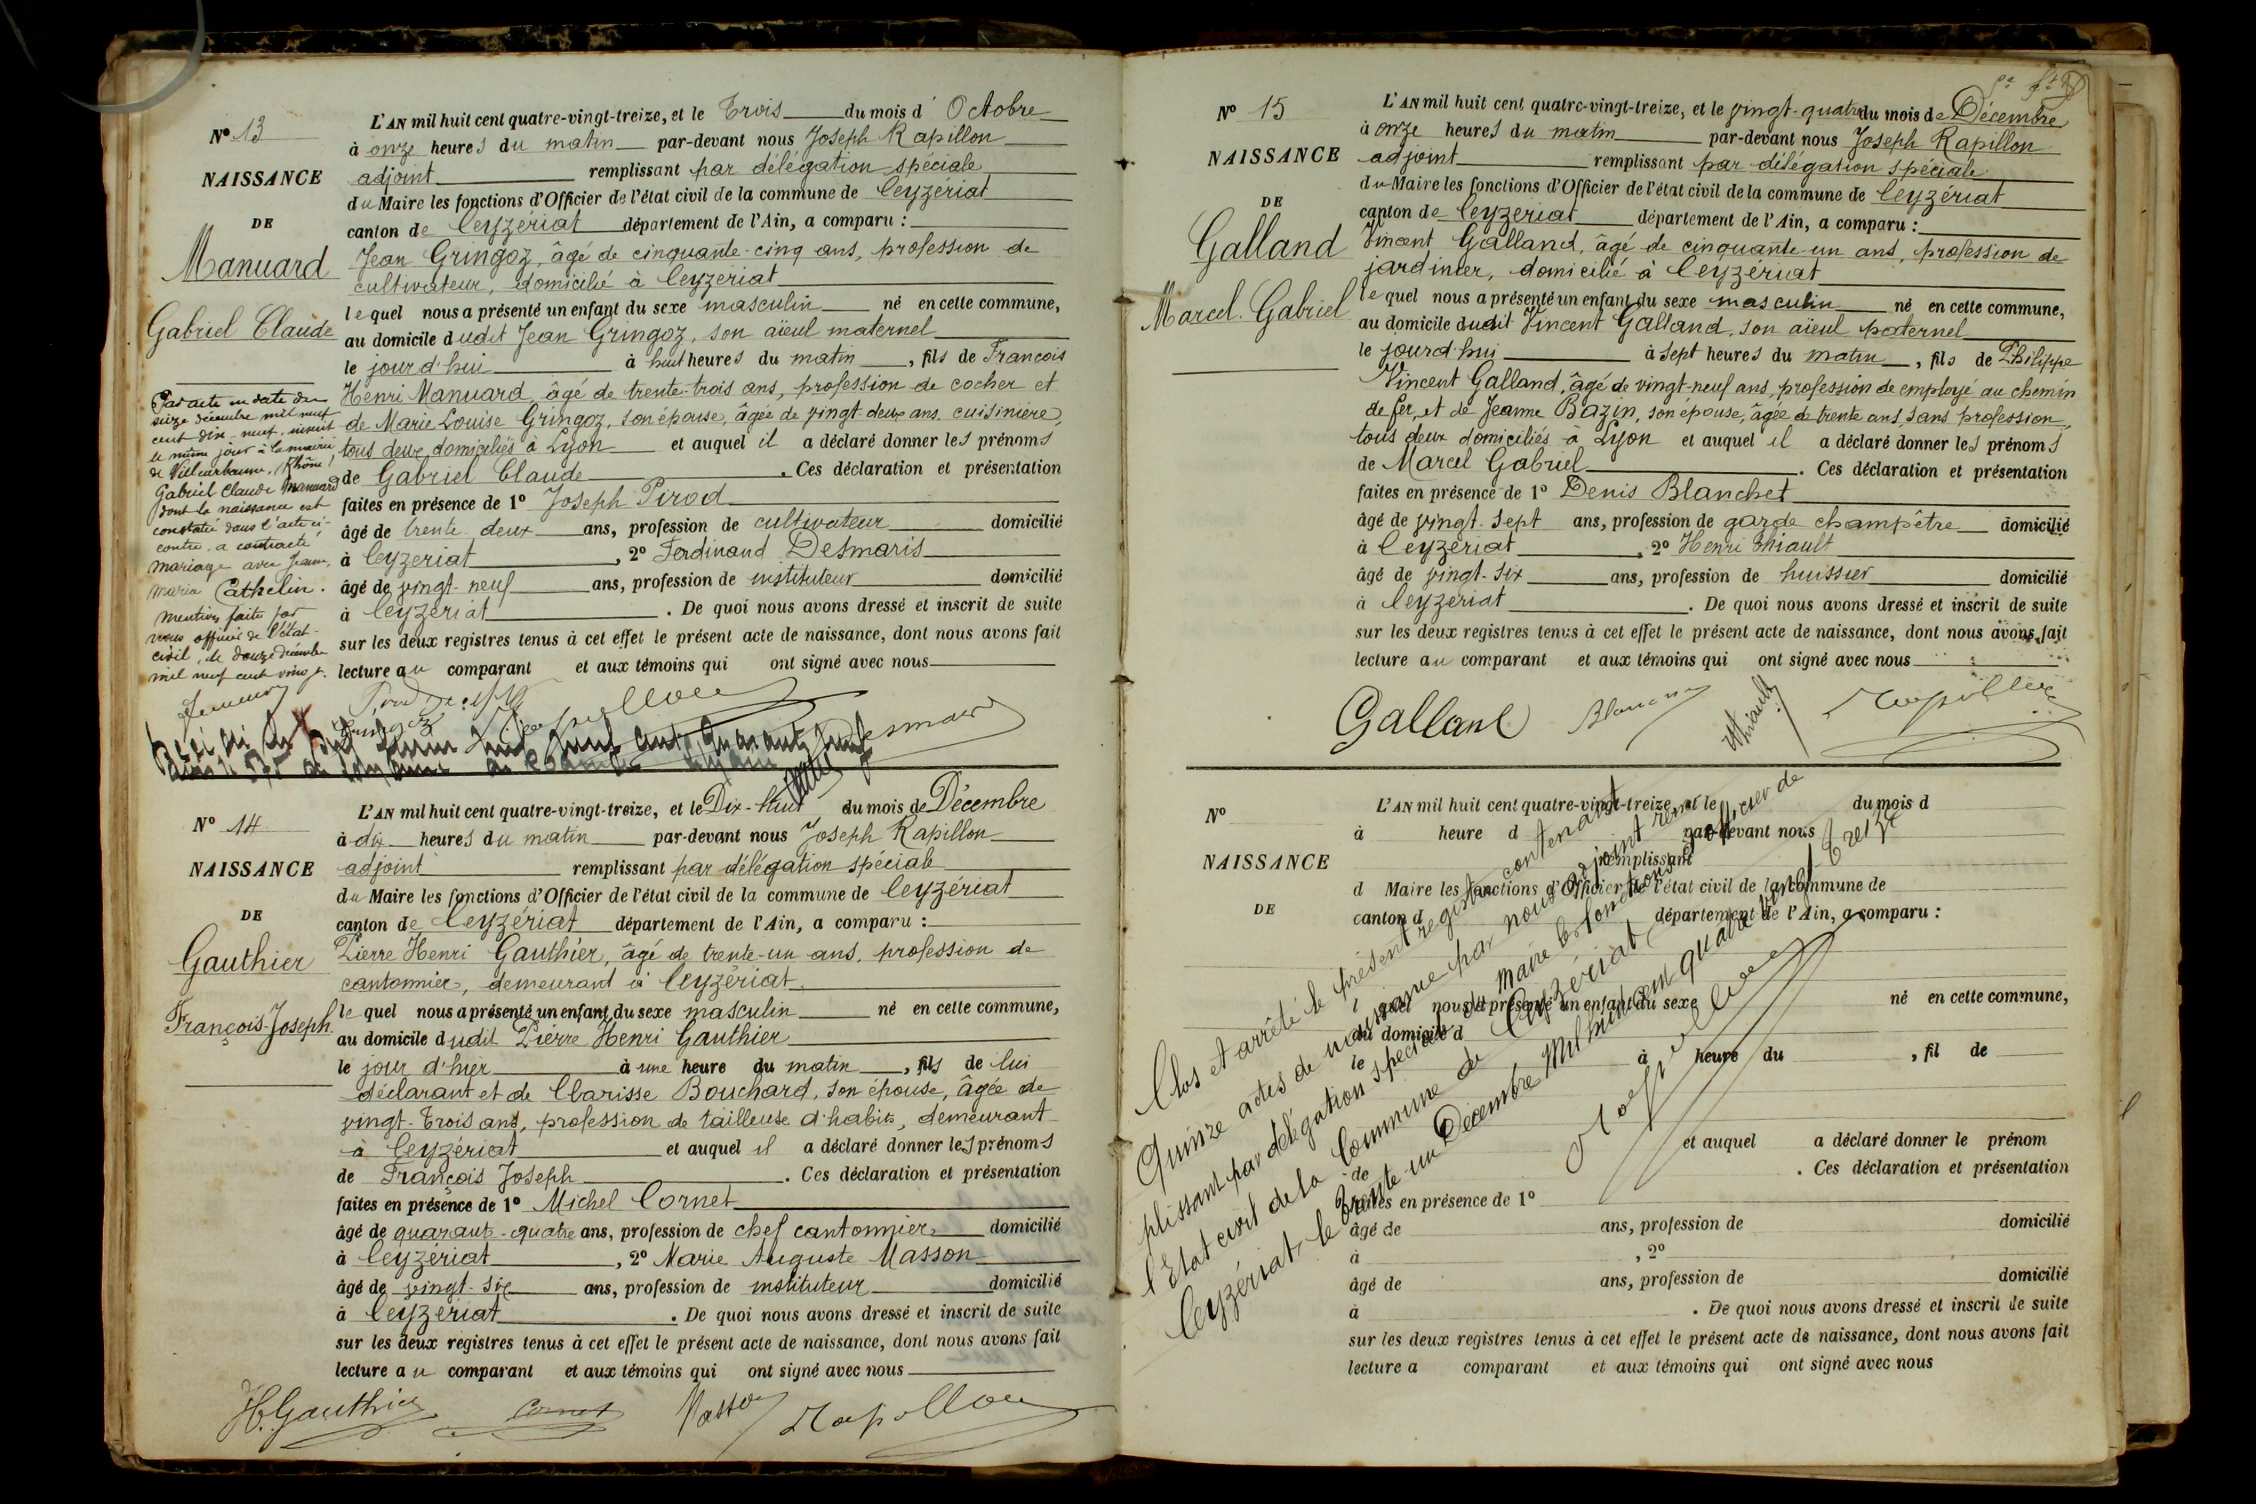 N° 13
NAISSANCE
DE
Manuard
Gabriel Claude
Par acte en date du
seize décembre mil neuf
cent dix-neuf, inscrit
le même jour à la mairie
de Villeurbanne, (Rhône)
Gabriel Claude Manuard
dont la naissance est
constatée dans l'acte ci-
contre, a contracté
mariage avec Jeanne,
Maria Cathelin.
Mention faite par
nous officier de l'état-
civil, le douze décembre
mil neuf cent vingt.
L'AN mil huit cent quatre-vingt-treize, et le Trois du mois d' Octobre
à onze heures du matin par-devant nous Joseph Rapillon
adjoint remplissant par délégation spéciale
du Maire les fonctions d'Officier de l'état civil de la commune de Ceyzériat
canton de Ceyzériat département de l'Ain, a comparu :
Jean Gringoz, âgé de cinquante-cinq ans, profession de
cultivateur, domicilié à Ceyzériat
lequel nous a présenté un enfant du sexe masculin né en cette commune,
au domicile dudit Jean Gringoz, son aïeul maternel
le jour d'hui à huit heures du matin, fils de François
Henri Manuard, âgé de trente-trois ans, profession de cocher et
de Marie Louise Gringoz, son épouse, âgée de vingt deux ans, cuisinière,
tous deux domiciliés à Lyon et auquel il a déclaré donner les prénoms
de Gabriel Claude. Ces déclaration et présentation
faites en présence de 1° Joseph Pirod
âgé de trente deux ans, profession de cultivateur domicilié
à Ceyzériat, 2° Ferdinand Desmaris
âgé de vingt-neuf ans, profession de instituteur domicilié
à Ceyzériat. De quoi nous avons dressé et inscrit de suite
sur les deux registres tenus à cet effet le présent acte de naissance, dont nous avons fait
lecture au comparant et aux témoins qui ont signé avec nous
Rapillon
Desmaris
N° 14
NAISSANCE
DE
Gauthier
François-Joseph
L'AN mil huit cent quatre-vingt-treize, et le Dix-huit du mois de Décembre
à dix heures du matin par-devant nous Joseph Rapillon
adjoint remplissant par délégation spéciale
du Maire les fonctions d'Officier de l'état civil de la commune de Ceyzériat
canton de Ceyzériat département de l'Ain, a comparu :
Pierre Henri Gauthier, âgé de trente-un ans, profession de
cantonnier, demeurant à Ceyzériat
lequel nous a présenté un enfant du sexe masculin né en cette commune,
au domicile dudit Pierre Henri Gauthier
le jour d'hier à une heure du matin, fils de lui
déclarant et de Clarisse Bouchard, son épouse, âgée de
vingt-trois ans, profession de tailleuse d'habits, demeurant
à Ceyzériat et auquel il a déclaré donner les prénoms
de François Joseph. Ces déclaration et présentation
faites en présence de 1° Michel Cornet
âgé de quarante-quatre ans, profession de chef cantonnier domicilié
à Ceyzériat, 2° Marie Auguste Masson
âgé de vingt-six ans, profession de instituteur domicilié
à Ceyzériat. De quoi nous avons dressé et inscrit de suite
sur les deux registres tenus à cet effet le présent acte de naissance, dont nous avons fait
lecture au comparant et aux témoins qui ont signé avec nous
H. Gauthier Cornet Masson Rapillon
N° 15
NAISSANCE
DE
Galland
Marcel-Gabriel
L'AN mil huit cent quatre-vingt-treize, et le vingt-quatre du mois de Décembre
à onze heures du matin par-devant nous Joseph Rapillon
adjoint remplissant par délégation spéciale
du Maire les fonctions d'Officier de l'état civil de la commune de Ceyzériat
canton de Ceyzériat département de l'Ain, a comparu :
Vincent Galland, âgé de cinquante-un ans, profession de
jardinier, domicilié à Ceyzériat
lequel nous a présenté un enfant du sexe masculin né en cette commune,
au domicile dudit Vincent Galland, son aïeul paternel
le jourd'hui à sept heures du matin, fils de Philippe
Vincent Galland, âgé de vingt-neuf ans, profession de employé au chemin
de fer, et de Jeanne Bazin, son épouse, âgée de trente ans, sans profession,
tous deux domiciliés à Lyon et auquel il a déclaré donner les prénoms
de Marcel Gabriel. Ces déclaration et présentation
faites en présence de 1° Denis Blanchet
âgé de vingt-sept ans, profession de garde champêtre domicilié
à Ceyzériat, 2° Henri Thiault
âgé de vingt-six ans, profession de huissier domicilié
à Ceyzériat. De quoi nous avons dressé et inscrit de suite
sur les deux registres tenus à cet effet le présent acte de naissance, dont nous avons fait
lecture au comparant et aux témoins qui ont signé avec nous
Galland Blanchet Thiault Rapillon
N°
NAISSANCE
DE
L'AN mil huit cent quatre-vingt-treize, et le du mois d
à heure d par-devant nous
remplissant
d Maire les fonctions d'Officier de l'état civil de la commune de
canton d département de l'Ain, a comparu :
l quel nous a présenté un enfant du sexe né en cette commune,
au domicile d
le à heure du , fil de
et auquel a déclaré donner le prénom
de . Ces déclaration et présentation
faites en présence de 1°
âgé de ans, profession de domicilié
à , 2°
âgé de ans, profession de domicilié
à . De quoi nous avons dressé et inscrit de suite
sur les deux registres tenus à cet effet le présent acte de naissance, dont nous avons fait
lecture a comparant et aux témoins qui ont signé avec nous
Clos et arrêté le présent registre contenant
Quinze actes de naissance par nous adjoint rem
plissant par délégation spéciale du Maire les fonctions d'officier de
l'Etat civil de la Commune de Ceyzériat
Ceyzériat, le trente-un Décembre mil huit cent quatre vingt Treize
Rapillon